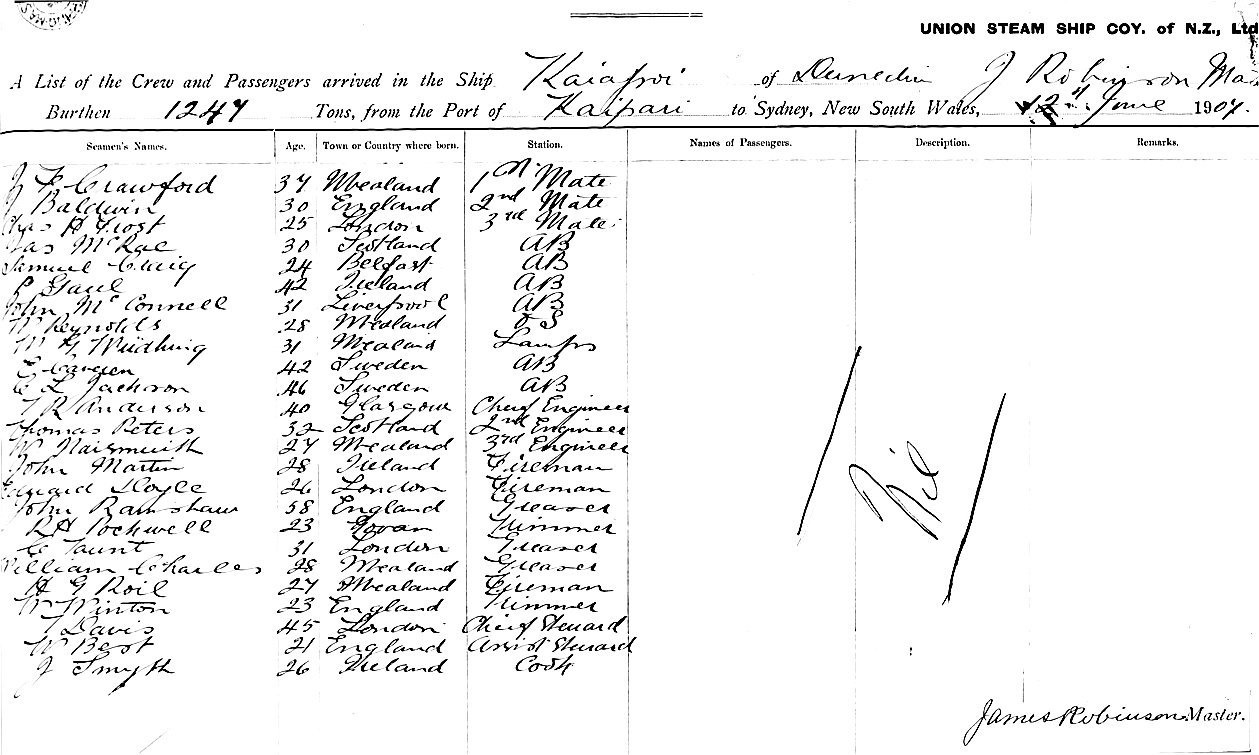 UNION STEAM SHIP COY. of N.Z., Ltd
A List of the Crew and Passengers arrived in the Ship Kaiapoi of Dunedin J Robinson Mas
Burthen 1247 Tons, from the Port of Kaipari to Sydney, New South Wales, 12th June 1907.
Seamen's Names. Age. Town or Country where born. Station. Names of Passengers. Description. Remarks.
J F Crawford 37 Nzealand 1st Mate
J Baldwin 30 England 2nd Mate
Chas H Frost 25 London 3rd Mate
Jas McRae 30 Scotland AB
Samuel Craig 24 Belfast AB
P Gaul 42 Ireland AB
John McConnell 31 Liverpool AB
W Reynolds 28 Nzealand O S
W G 31 Nzealand Lamps
E 42 Sweden AB
C L Jackson 46 Sweden AB
T R Anderson 40 Glasgow Chief Engineer
Thomas Peters 32 Scotland 2nd Engineer
W Naismith 27 Nzealand 3rd Engineer
John Martin 28 Ireland Fireman
Edward Doyle 26 London Fireman
John Ramshaw 58 England Greaser
R H Rockwell 23 Govan Trimmer
C Taunt 31 London Greaser
William Charles 28 Nzealand Greaser
H G Roil 27 Nzealand Fireman
W Winton 23 England Trimmer
T Davis 45 London Chief Steward
W Best 21 England Assist Steward
J Smyth 26 Ireland Cook
Nil
James Robinson Master.